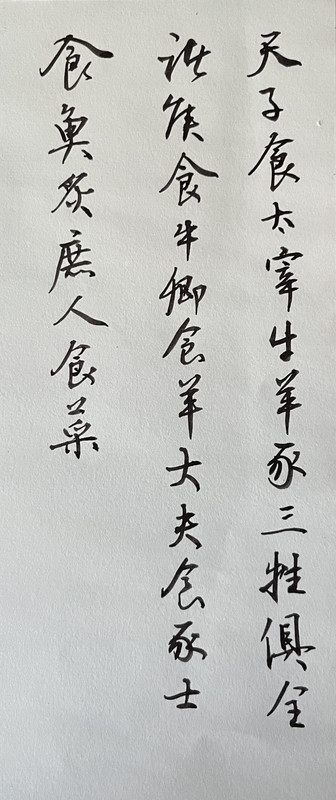 天子食太宰牛羊豕三牲俱全
诸侯食牛卿食羊大夫食豕士
食魚炙庶人食菜